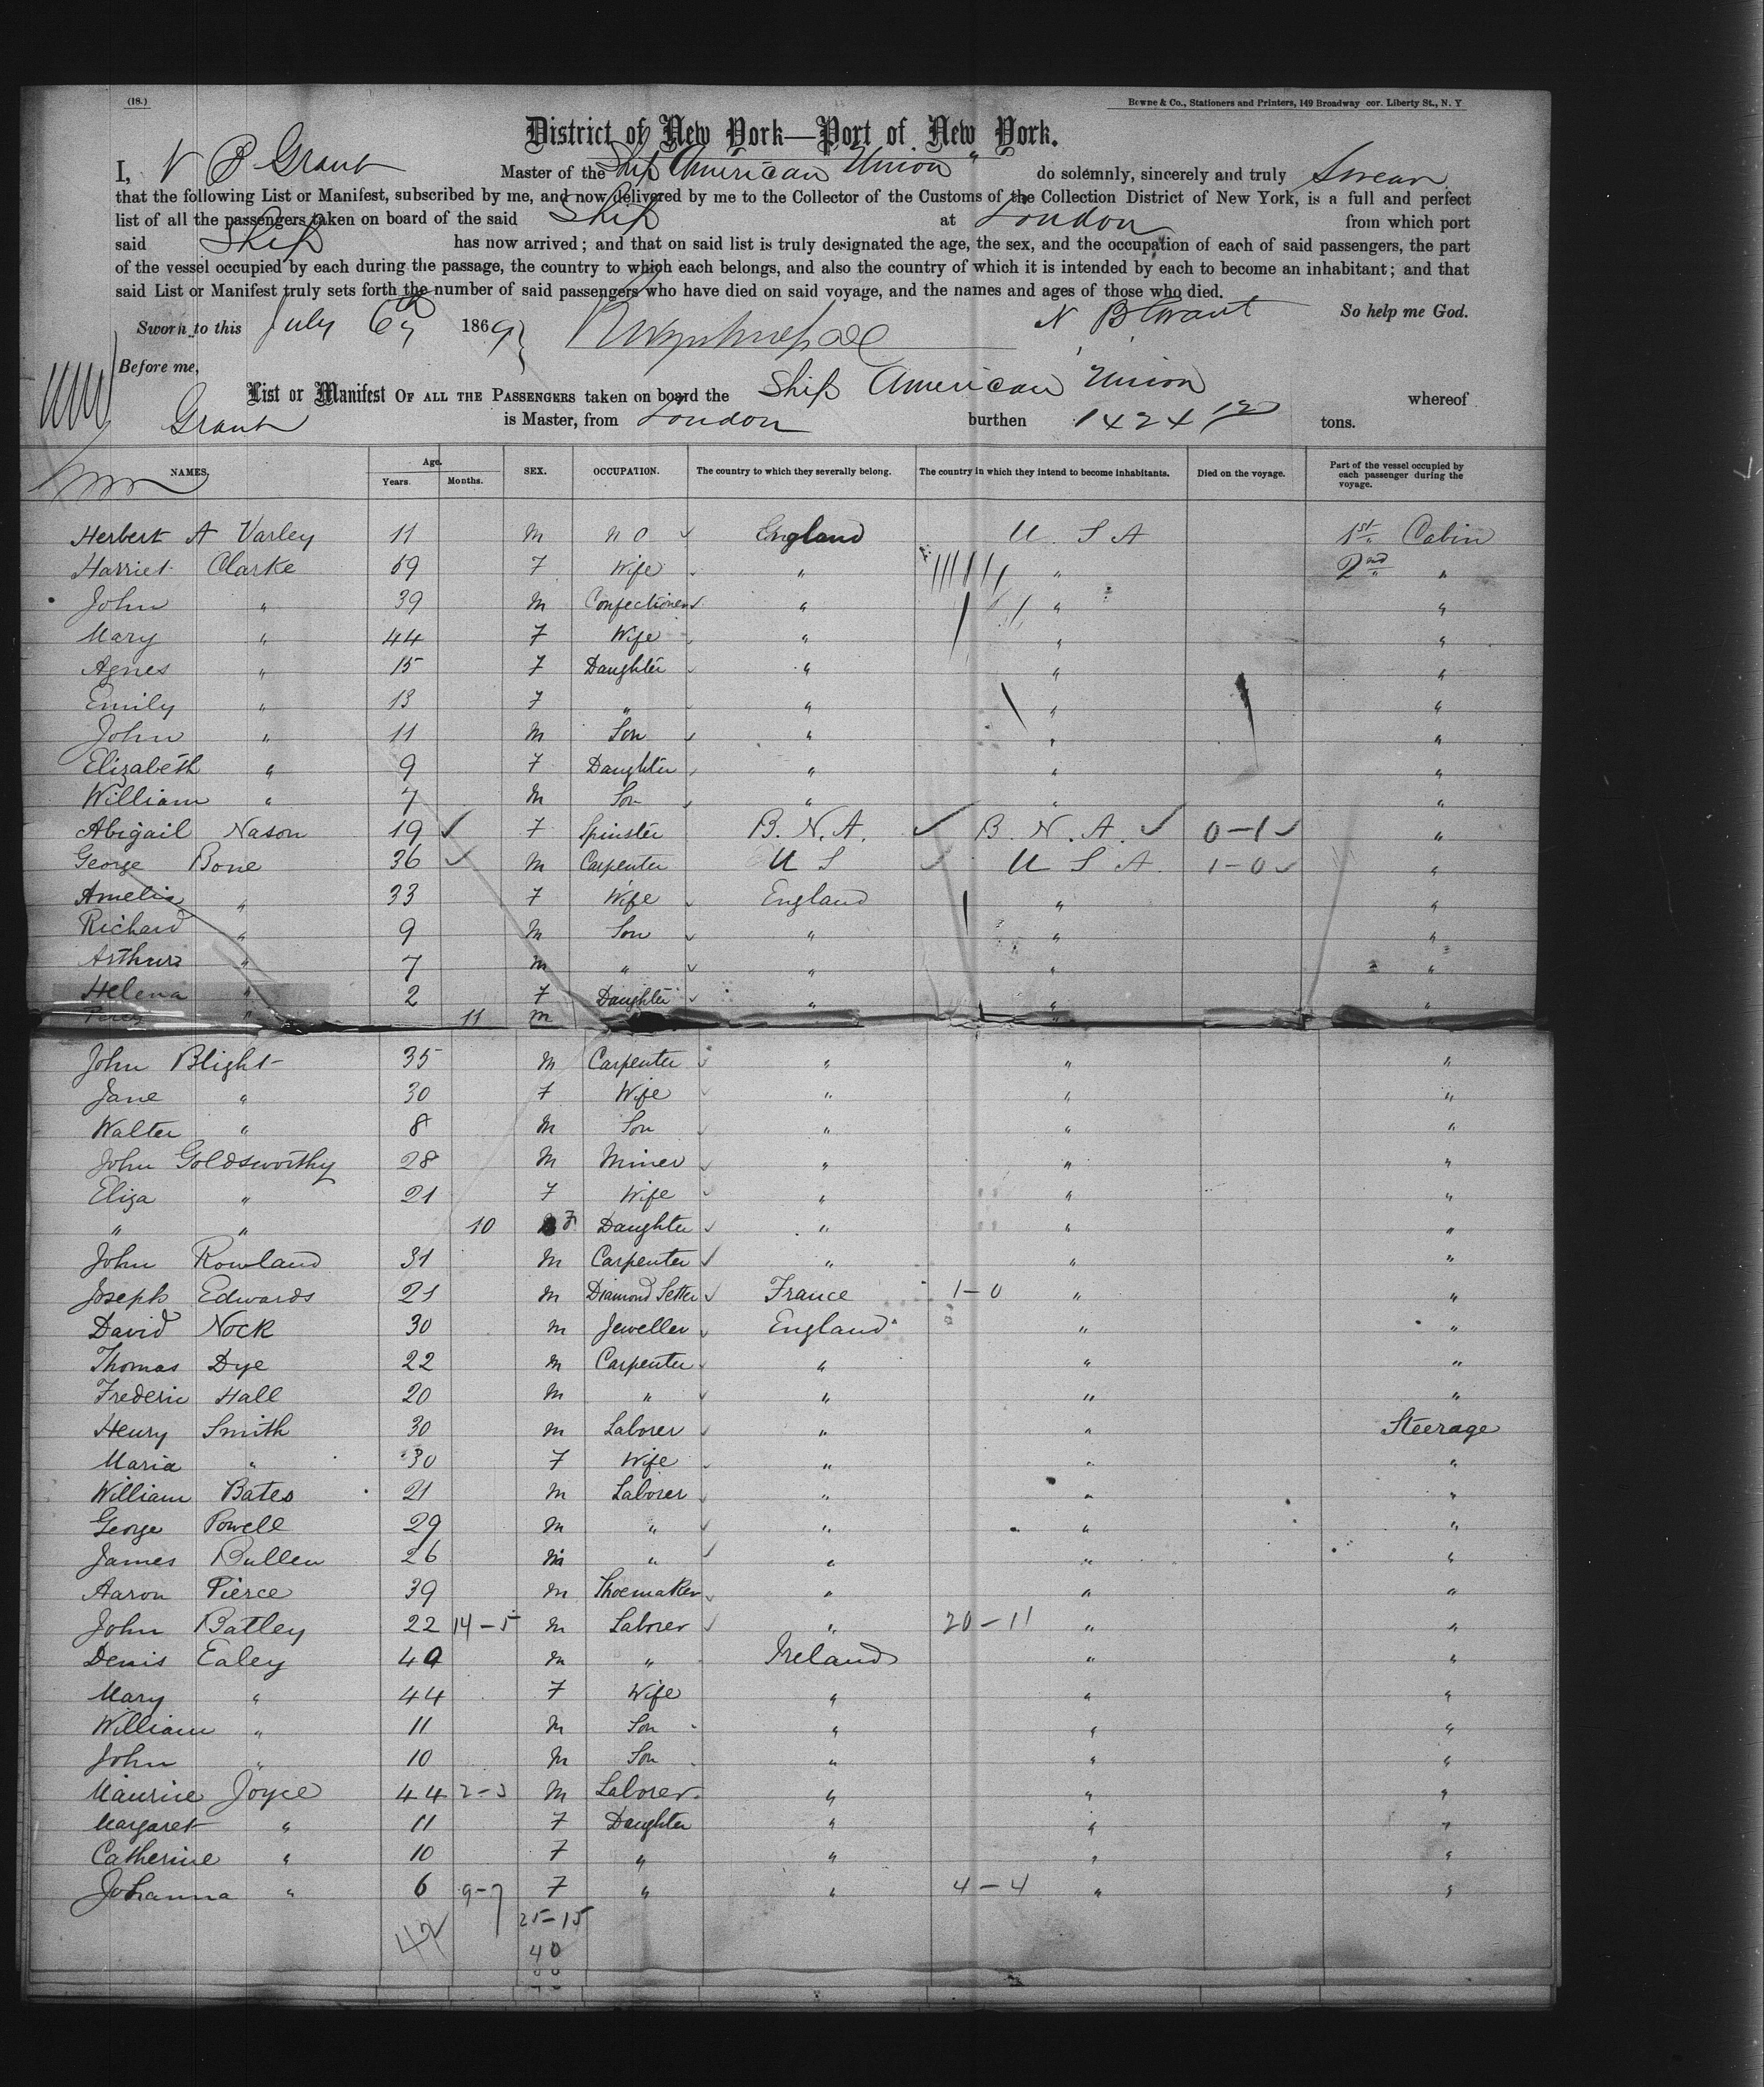 (18.)
Bowne & Co., Stationers and Printers, 149 Broadway cor. Liberty St., N. Y
District of New York—Port of New York.
I, N B Grant Master of the Ship American Union do solemnly, sincerely and truly Swear
that the following List or Manifest, subscribed by me, and now delivered by me to the Collector of the Customs of the Collection District of New York, is a full and perfect
list of all the passengers taken on board of the said Ship at London from which port
said Ship has now arrived; and that on said list is truly designated the age, the sex, and the occupation of each of said passengers, the part
of the vessel occupied by each during the passage, the country to which each belongs, and also the country of which it is intended by each to become an inhabitant; and that
said List or Manifest truly sets forth the number of said passengers who have died on said voyage, and the names and ages of those who died.
Sworn to this July 6th 1869 N B Grant So help me God.
Before me,
List or Manifest OF ALL THE PASSENGERS taken on board the Ship American Union whereof
Grant is Master, from London burthen 1424 tons.
NAMES. Age. Years. Months. SEX. OCCUPATION. The country to which they severally belong. The country in which they intend to become inhabitants. Died on the voyage. Part of the vessel occupied by each passenger during the voyage.
Herbert A Varley 11 M n o England U S A 1st Cabin
Harriet Clarke 69 F Wife " " 2nd "
John " 39 M Confectioner " " "
Mary " 44 F Wife " " "
Agnes " 15 F Daughter " " "
Emily " 13 F " " " "
John " 11 M Son " " "
Elizabeth " 9 F Daughter " " "
William " 7 M Son " " "
Abigail Nason 19 ✓ F Spinster B. N. A. ✓ B. N. A. ✓ 0-1 ✓ "
George Bone 36 ✓ M Carpenter U S ✓ U S A. 1-0 ✓ "
Amelia " 33 F Wife England " "
Richard " 9 M Son " " "
Arthur " 7 M " " " "
Helena " 2 F Daughter " " "
Percy " 11 M
John Blight 35 M Carpenter " " "
Jane " 30 F Wife " " "
Walter " 8 M Son " " "
John Goldsworthy 28 M Miner " " "
Eliza " 21 F Wife " " "
" " 10 F Daughter " " "
John Rowland 31 M Carpenter " " "
Joseph Edwards 21 M Diamond Setter France 1-0 " "
David Nock 30 M Jeweller England " "
Thomas Dye 22 M Carpenter " " "
Frederic Hall 20 M " " " "
Henry Smith 30 M Laborer " " Steerage
Maria " 30 F Wife " " "
William Bates 21 M Laborer " " "
George Powell 29 M " " " "
James Bullen 26 M " " " "
Aaron Pierce 39 M Shoemaker " " "
John Batley 22 14-5 M Laborer " 20-11 " "
Denis Ealey 40 M " Ireland " "
Mary " 44 F Wife " " "
William " 11 M Son " " "
John " 10 M Son " " "
Maurice Joyce 44 2-3 M Laborer " " "
Margaret " 11 F Daughter " " "
Catherine " 10 F " " " "
Johanna " 6 9-7 F " " 4-4 " "
42 25-15
40